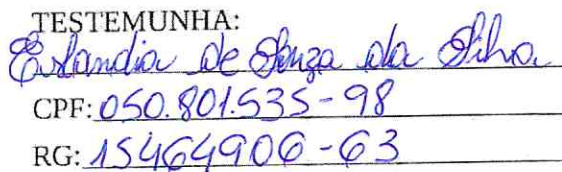 TESTEMUNHA:
Eslandia de Souza da Silva
CPF: 050.801.535-98
RG: 15464906-63